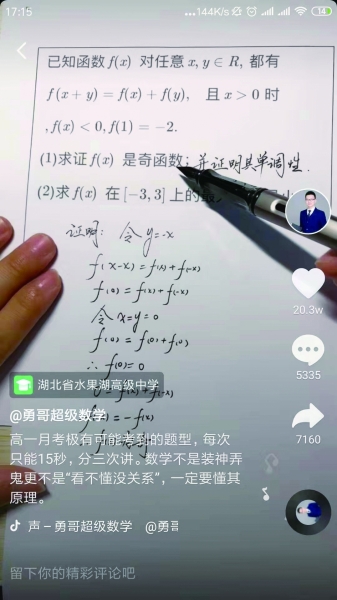 17:15
...144K/s
14
已知函数f(x) 对任意x, y ∈ R, 都有
f(x + y) = f(x) + f(y), 且x > 0 时
, f(x) < 0, f(1) = −2.
(1)求证f(x) 是奇函数; 并证明其单调性.
(2)求f(x) 在[−3, 3]上的
证明: 令y=-x
f(x-x)=f(x)+f(-x)
f(0)=f(x)+f(-x)
令x=y=0
f(0)=f(0)+f(0)
∴f(0)=0
=f(x)+f(-x)
=-f(x)
20.3w
5335
7160
湖北省水果湖高级中学
@勇哥超级数学
高一月考极有可能考到的题型，每次
只能15秒，分三次讲。数学不是装神弄
鬼更不是“看不懂没关系”，一定要懂其
原理。
声 – 勇哥超级数学 @勇哥
留下你的精彩评论吧